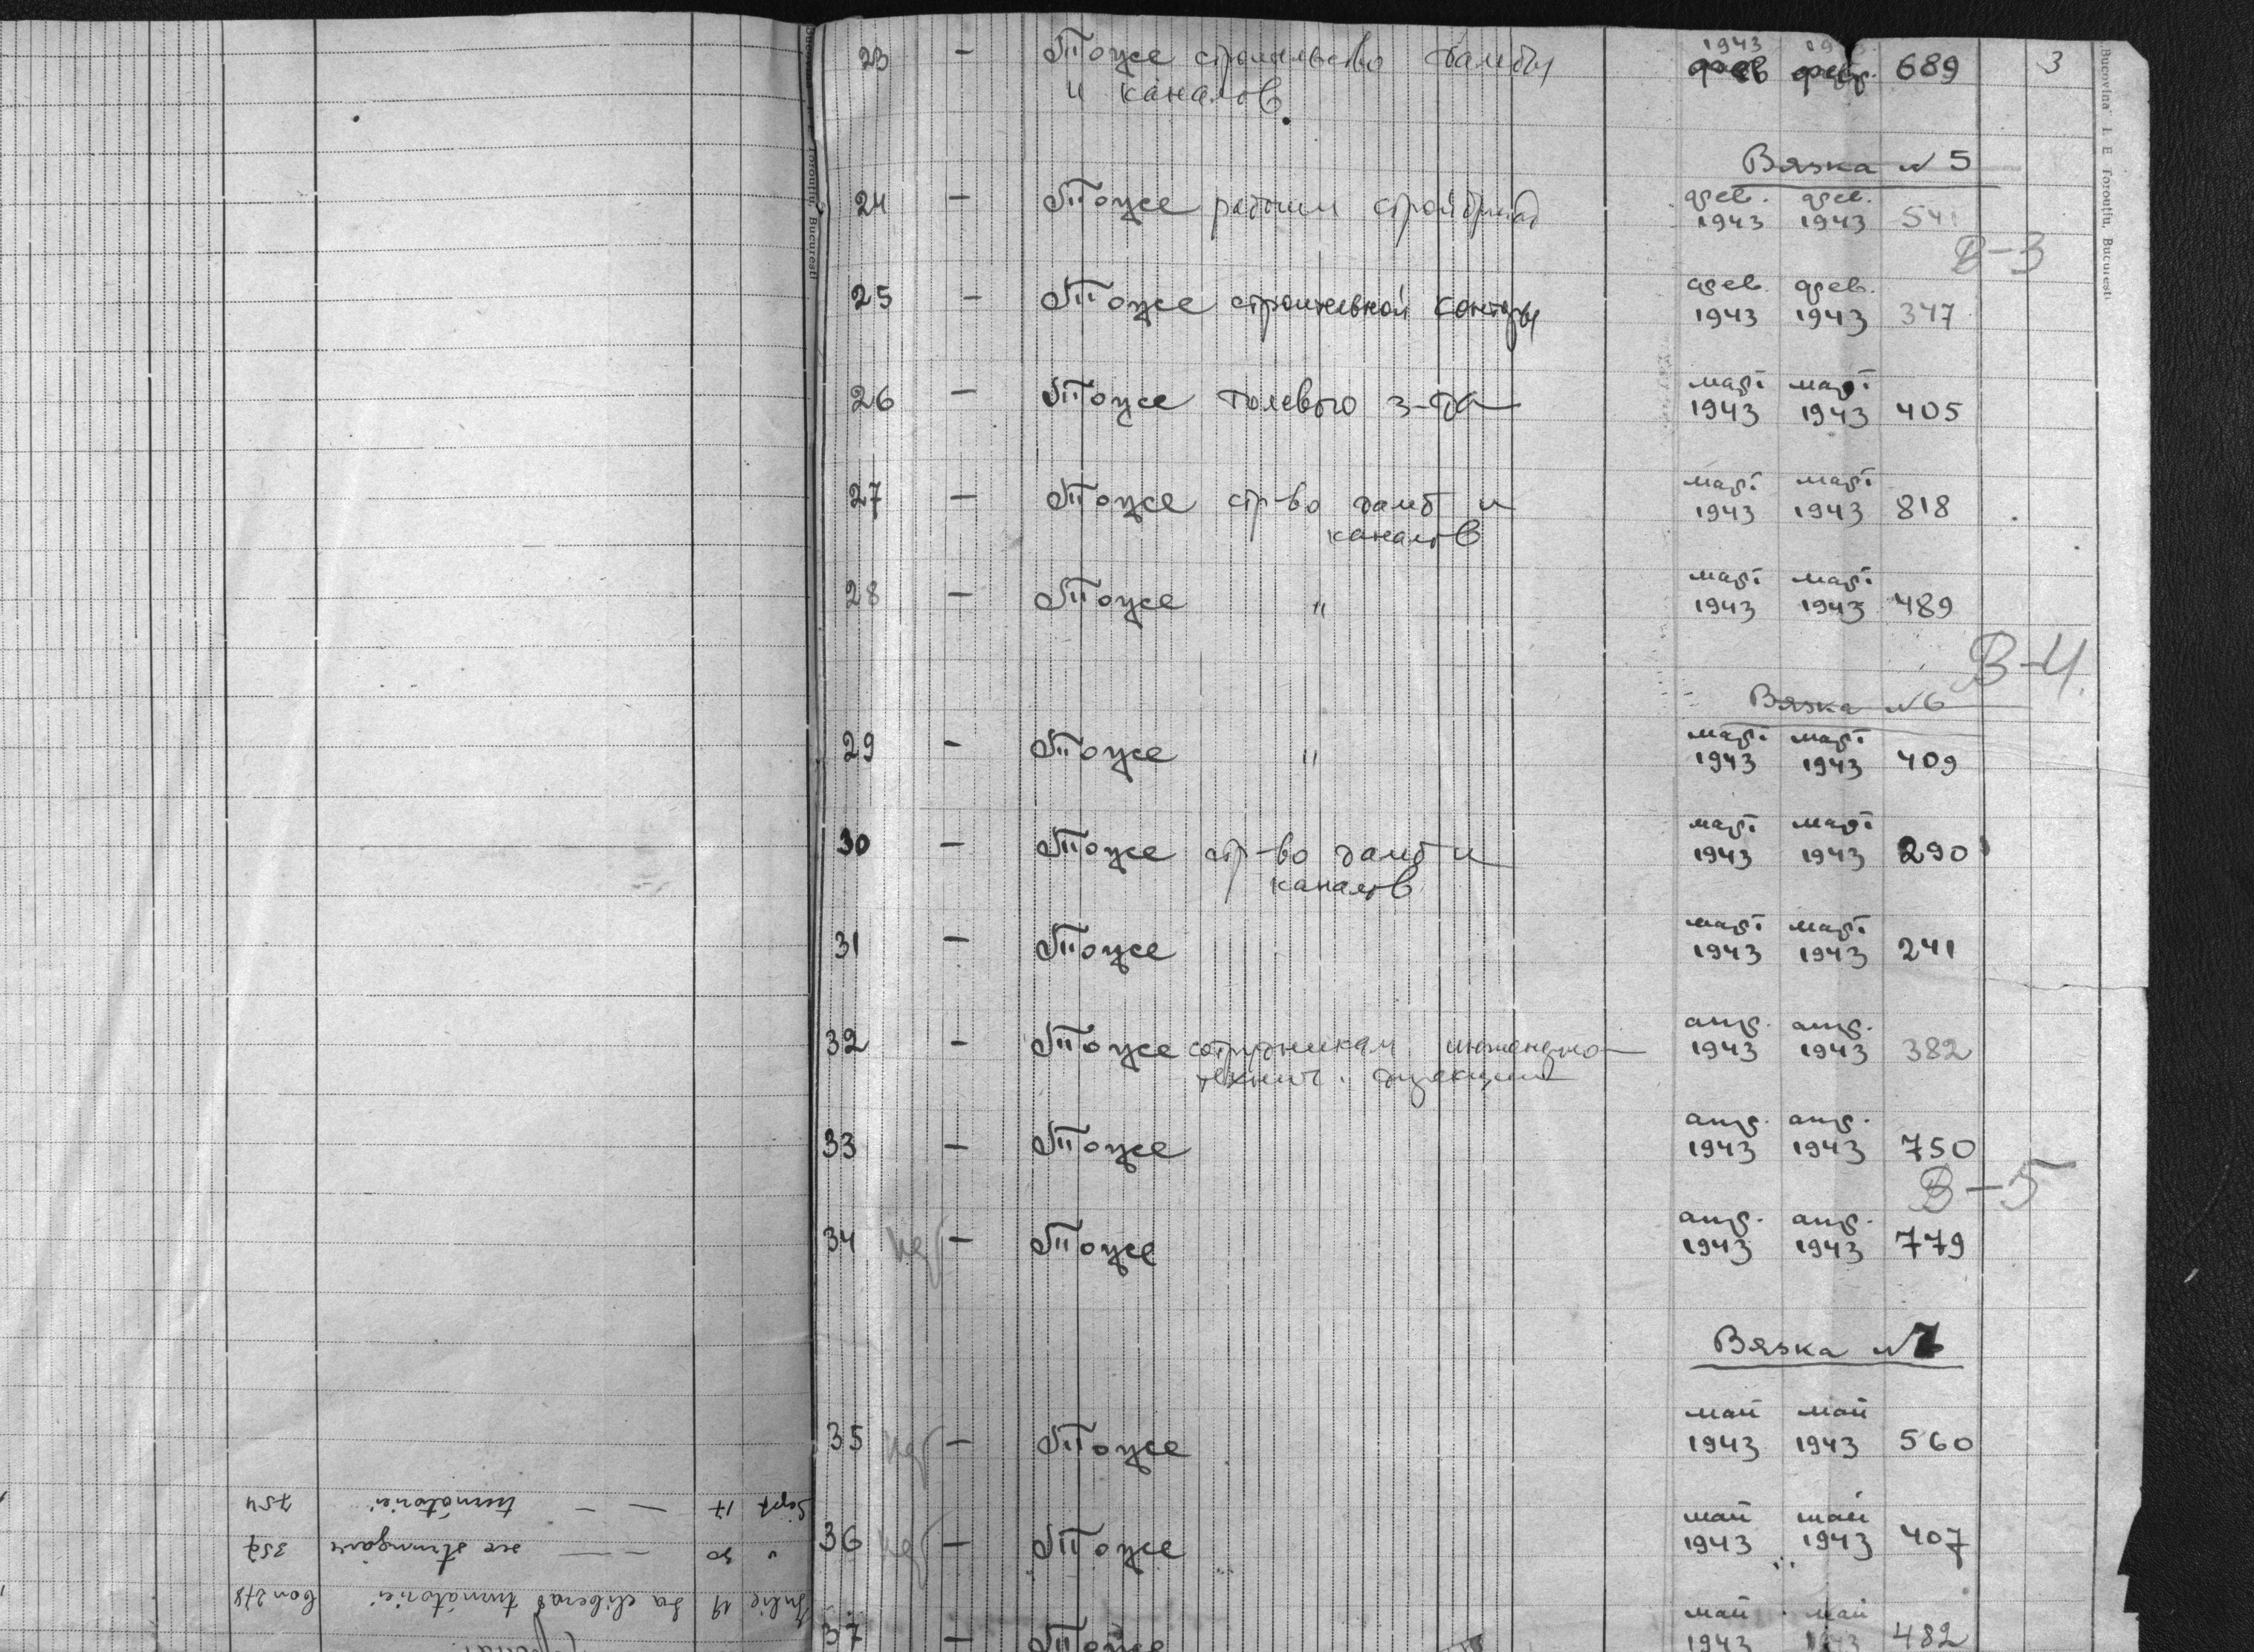 23 — Тоже строительство дамбы 1943 1943 689 3
и каналов. фев февр.
Вязка № 5
24 — Тоже рабочим стройбригад фев. фев. 541
1943 1943
В-3
25 — Тоже строительной конторы фев. фев. 347
1943 1943
26 — Тоже толевого з-да март март 405
1943 1943
27 — Тоже стр-во дамб и март март 818
каналов 1943 1943
28 — Тоже " март март 489
1943 1943
В-4.
Вязка № 6
29 — Тоже " март март 409
1943 1943
30 — Тоже стр-во дамб и март март 290
каналов 1943 1943
31 — Тоже март март 241
1943 1943
32 — Тоже сотрудникам инженерно- апр. апр. 382
технич. дирекции 1943 1943
33 — Тоже апр. апр. 750
1943 1943
В-5
34 — Тоже апр. апр. 779
1943 1943
Вязка № 7
35 — Тоже май май 560
1943 1943
36 — Тоже май май 407
1943 1943
37 — Тоже май май 482
1943 1943
Bucovina I. E. Toroutiu, Bucuresti
Toroutiu, Bucuresti
Iulie 19 Sa eliberat turnătoriei bon 278
" 30 — — strungărie 357
Sept 17 — — turnătoriei 754